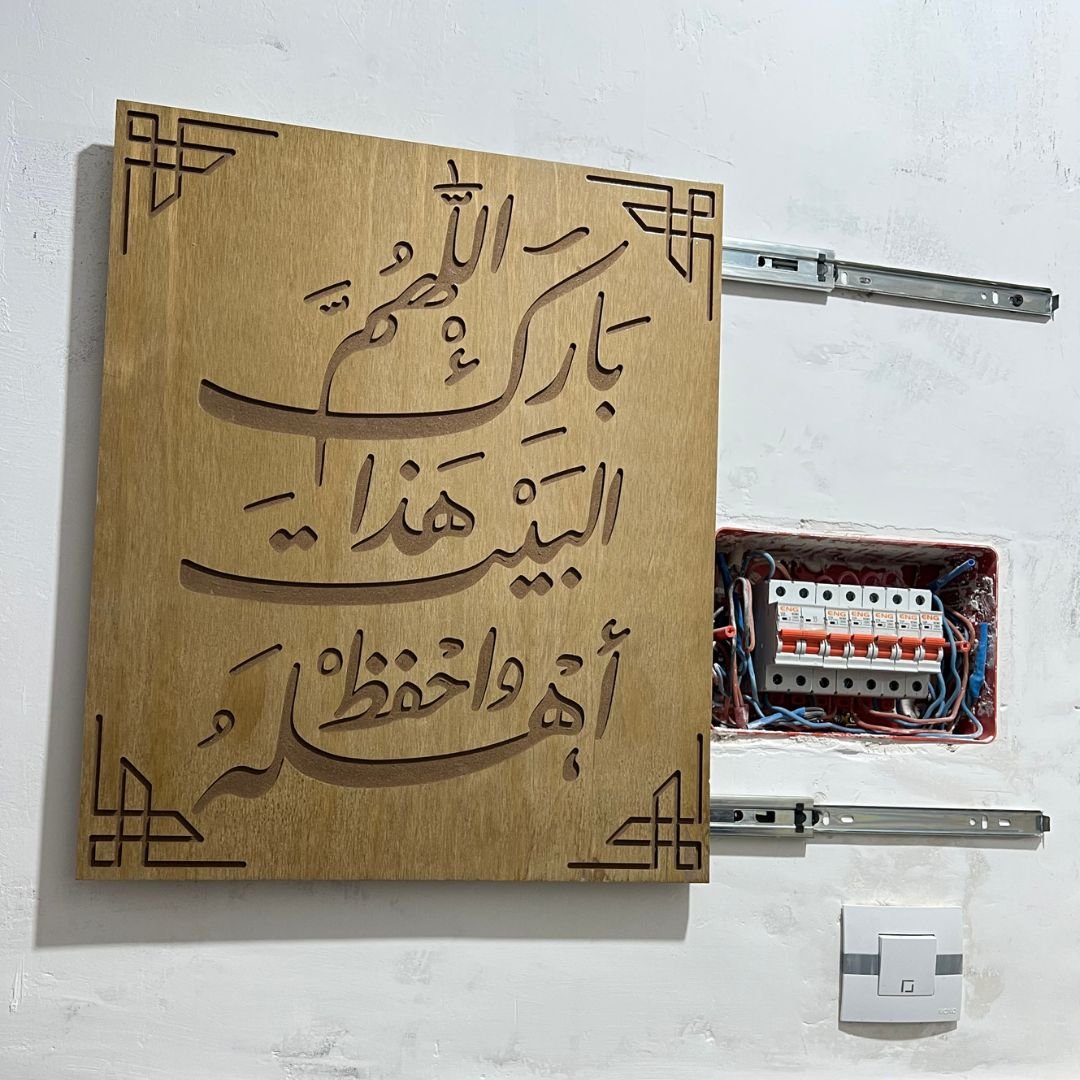 اللَّهُمَّ
بَارِكْ
هَذَا
البَيْتَ
وَاحْفَظْ
أَهْلَهُ
ENG
ENG
ENG
ENG
ENG
ENG